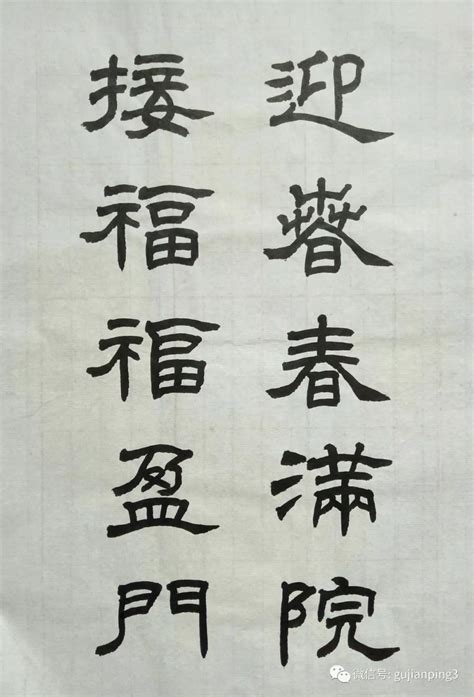 迎春春滿院
接福福盈門
微信号: gujianping3